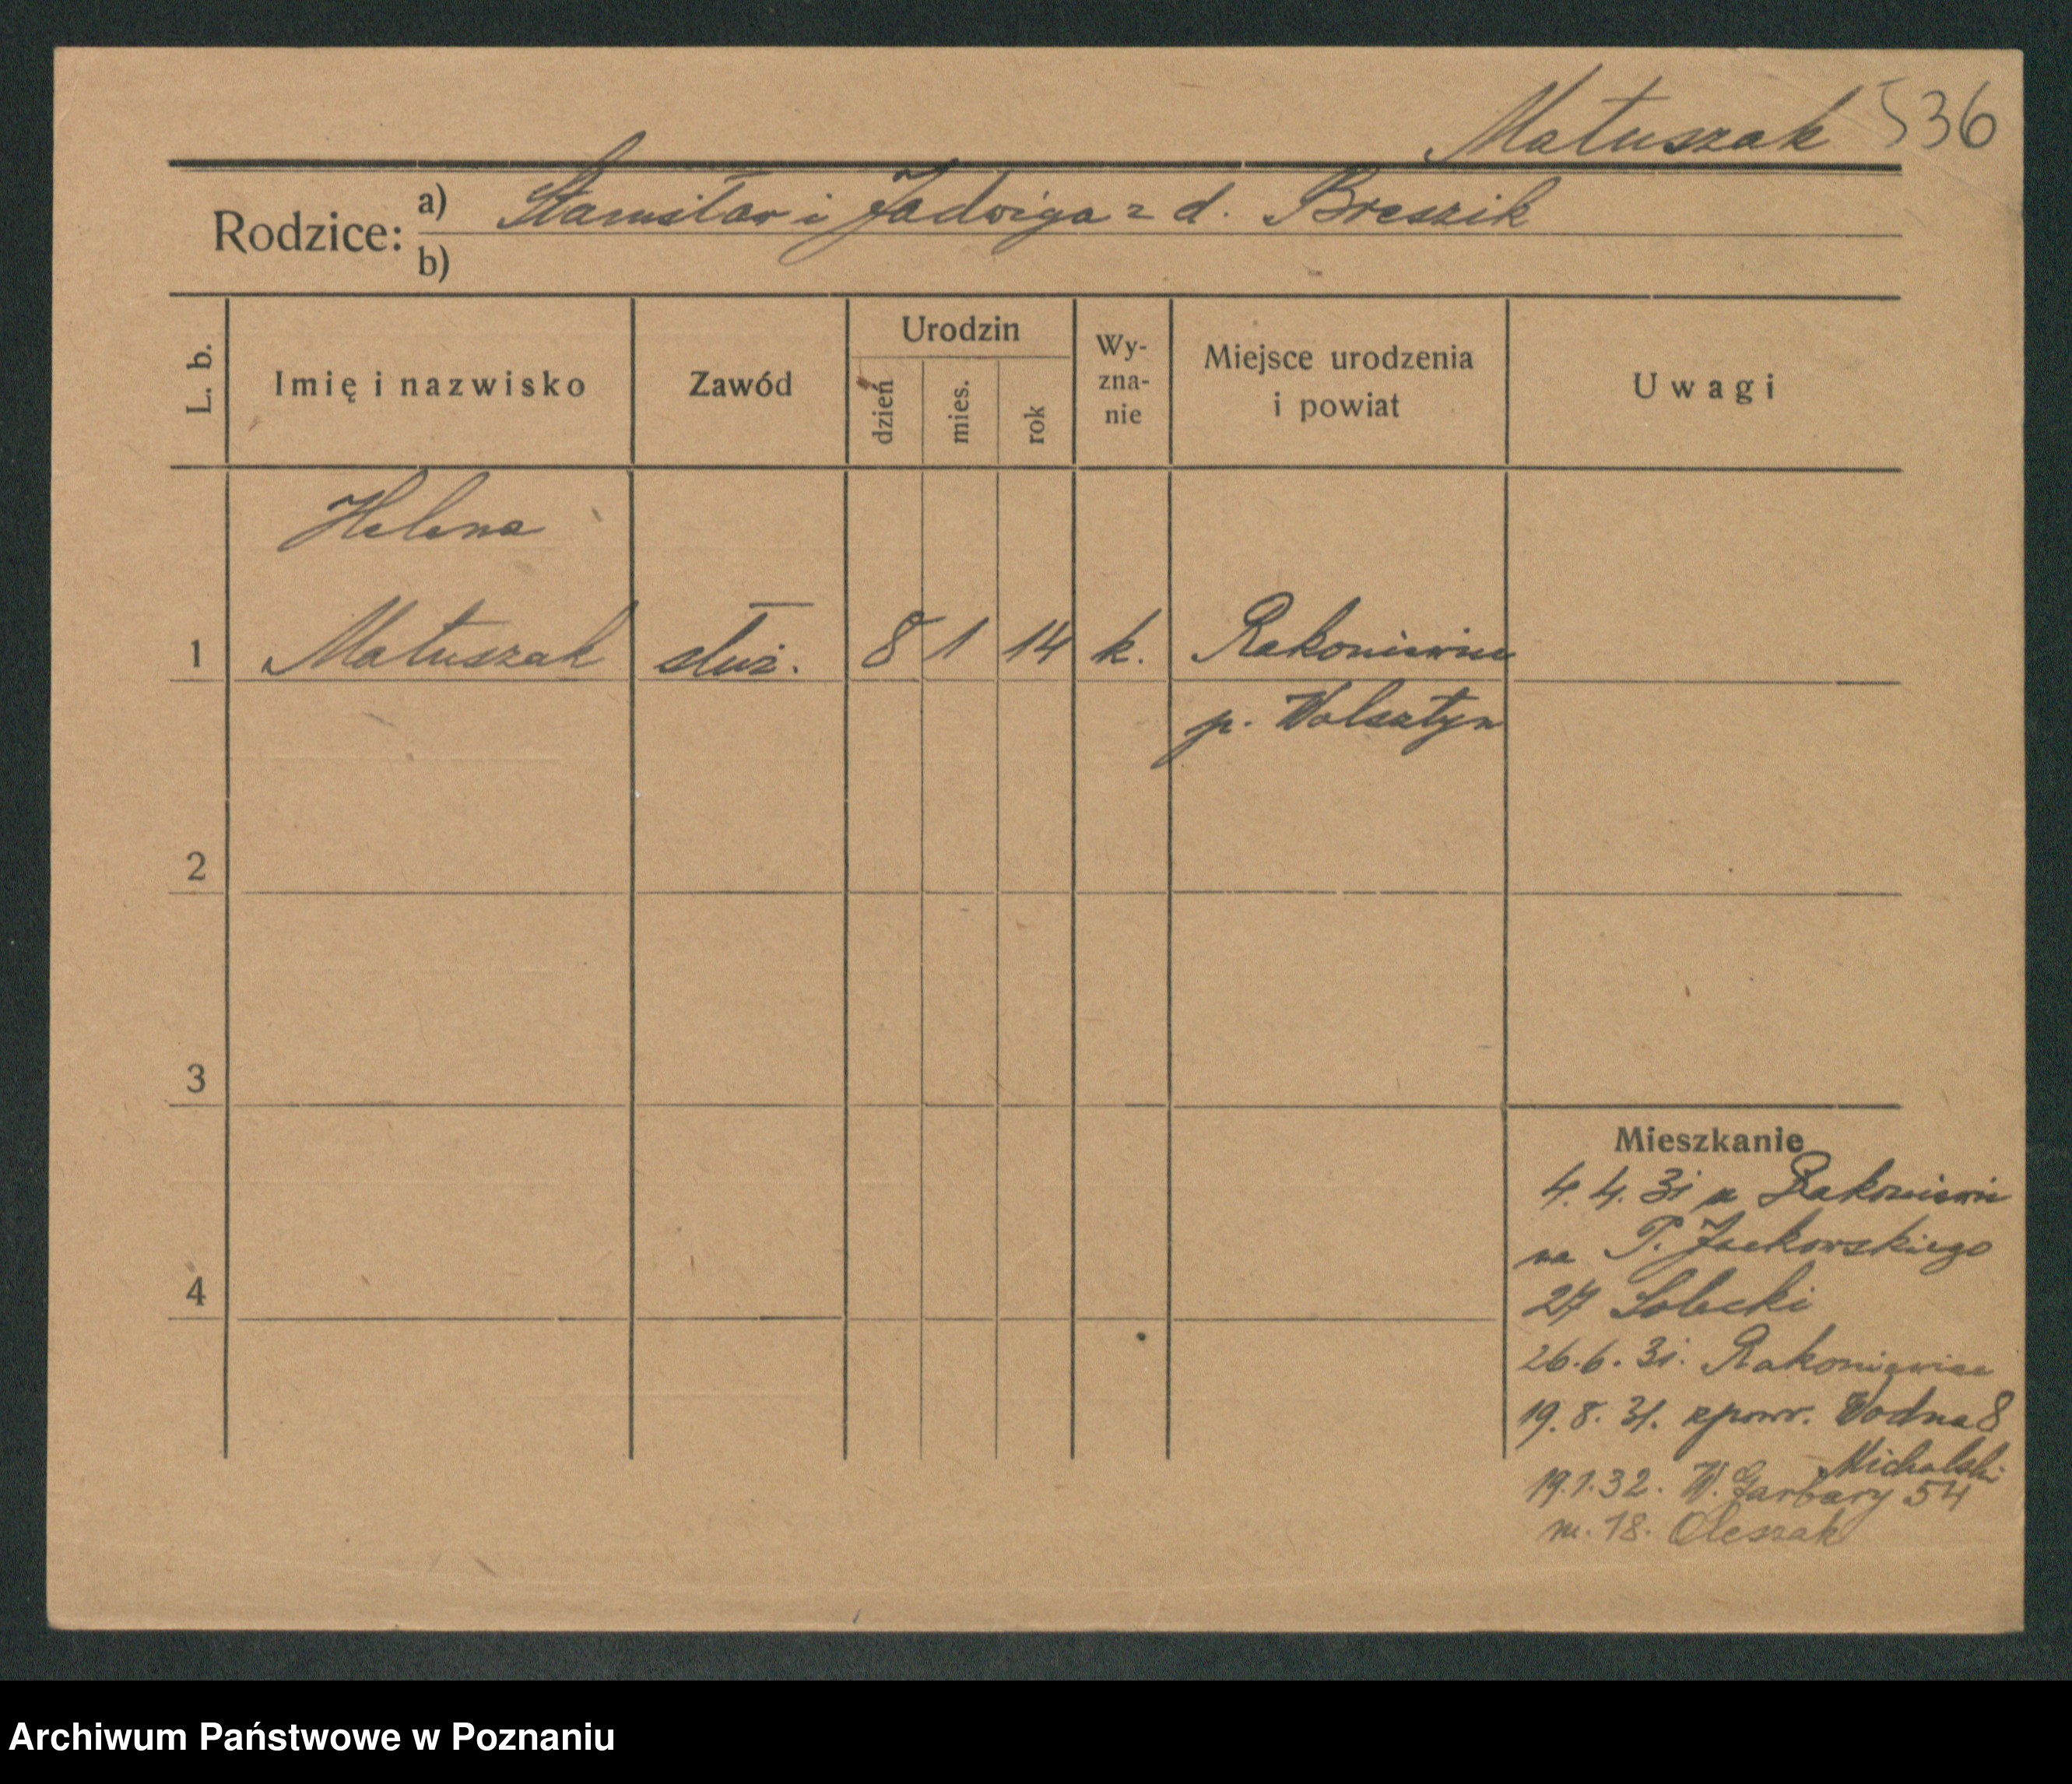 Matuszak 536
Rodzice: a) Stanisław i Jadwiga z d. Breszik
b)
L. b. Imię i nazwisko Zawód Urodzin dzień mies. rok Wy-zna-nie Miejsce urodzenia i powiat Uwagi
Helena
1 Matuszak służ. 8 1 14 k. Rakoniewice
p. Wolsztyn
2
3
Mieszkanie
4. 4. 31 z Rakoniewic
na P. Jackowskiego
4
27 Solecki
26.6.31. Rakoniewice
19.8.31. zpowr. Wodna 8
Michalski
19.1.32. W. Garbary 54
m. 18. Oleszak
Archiwum Państwowe w Poznaniu